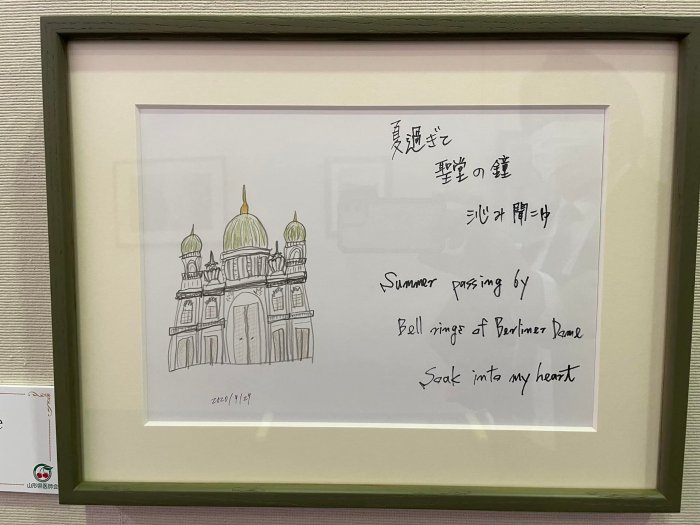 夏過ぎて
聖堂の鐘
沁み聞こゆ
Summer passing by
Bell rings of Berliner Dome
Soak into my heart
2020/9/29
e
山形県医師会